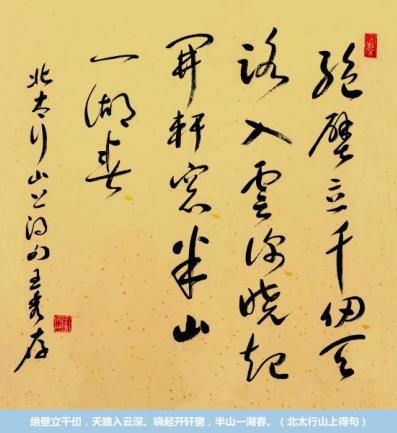 绝壁立千仞天
路入云深晓起
开轩窗半山
一湖春
北太行山上得句王秀存
绝壁立千仞，天路入云深。晓起开轩窗，半山一湖春。（北太行山上得句）